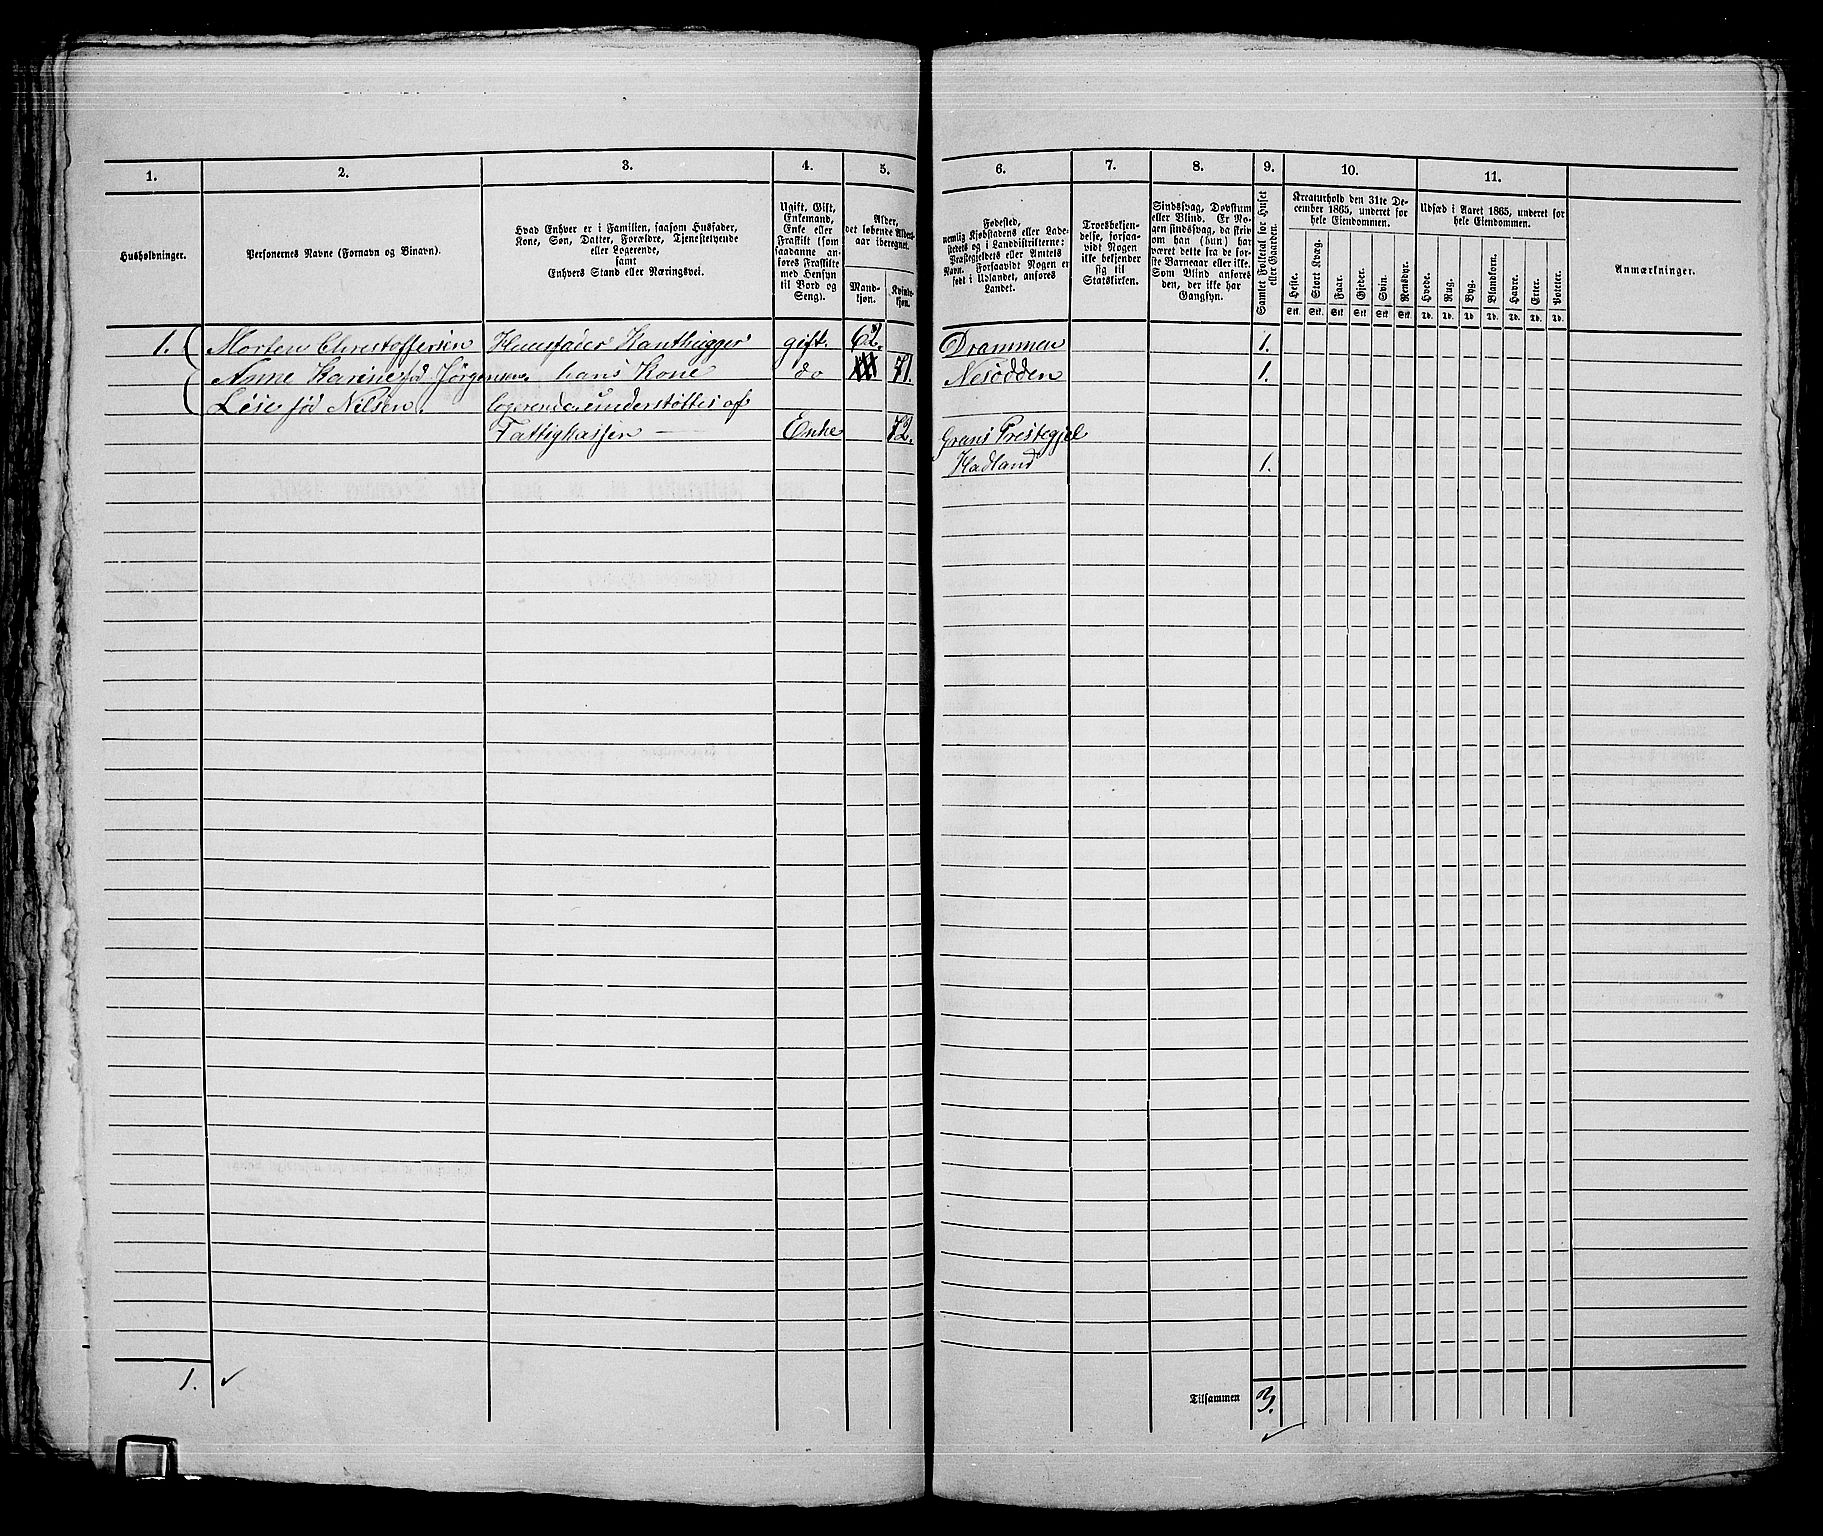 1. 2. 3. 4. 5. 6. 7. 8. 9. 10. 11.
Husholdninger.
Personernes Navne (Fornavn og Binavn).
Hvad Enhver er i Familien, saasom Husfader,
Kone, Søn, Datter, Forældre, Tjenestetyende
eller Logerende,
samt
Enhvers Stand eller Næringsvei.
Ugift, Gift,
Enkemand,
Enke eller
Fraskilt (som
saadanne an-
føres Fraskilte
med Hensyn
til Bord og
Seng).
Alder,
det løbende Alders-
aar iberegnet.
Mand-
kjøn.
Kvinde-
kjøn.
Fødested,
nemlig Kjøbstadens eller Lade-
stedets og i Landdistrikterne:
Præstegjeldets eller Amtets
Navn. Forsaavidt Nogen er
født i Udlandet, anføres
Landet.
Troesbekjen-
delse, forsaa-
vidt Nogen
ikke bekjender
sig til
Statskirken.
Sindssvag, Døvstum
eller Blind. Er No-
gen sindssvag, da skriv
om han (hun) har
været dette fra de før-
ste Barneaar eller ikke.
Som Blind anføres
den, der ikke har
Gangsyn.
Samlet Folketal for Huset
eller Gaarden.
Kreaturhold den 31te De-
cember 1865, underet for
hele Eiendommen.
Heste. Stort Kvæg. Faar. Gjeder. Svin. Rensdyr.
Stk. Stk. Stk. Stk. Stk. Stk.
Udsæd i Aaret 1865, underet for
hele Eiendommen.
Hvede. Rug. Byg. Blandkorn. Havre. Erter. Poteter.
Td. Td. Td. Td. Td. Td. Td.
Anmærkninger.
1. Morten Christoffersen Huusfaier Kanthugger gift. 62. Drammen 1.
Anne Karine fød Jørgensen. hans Kone do 71. Nesodden 1.
Lise fød Nilsen. logerende understøttes af
Fattigkassen — Enke 72. Grans Prestegjel
Hadland 1.
1. ✓
Tilsammen 3. ✓